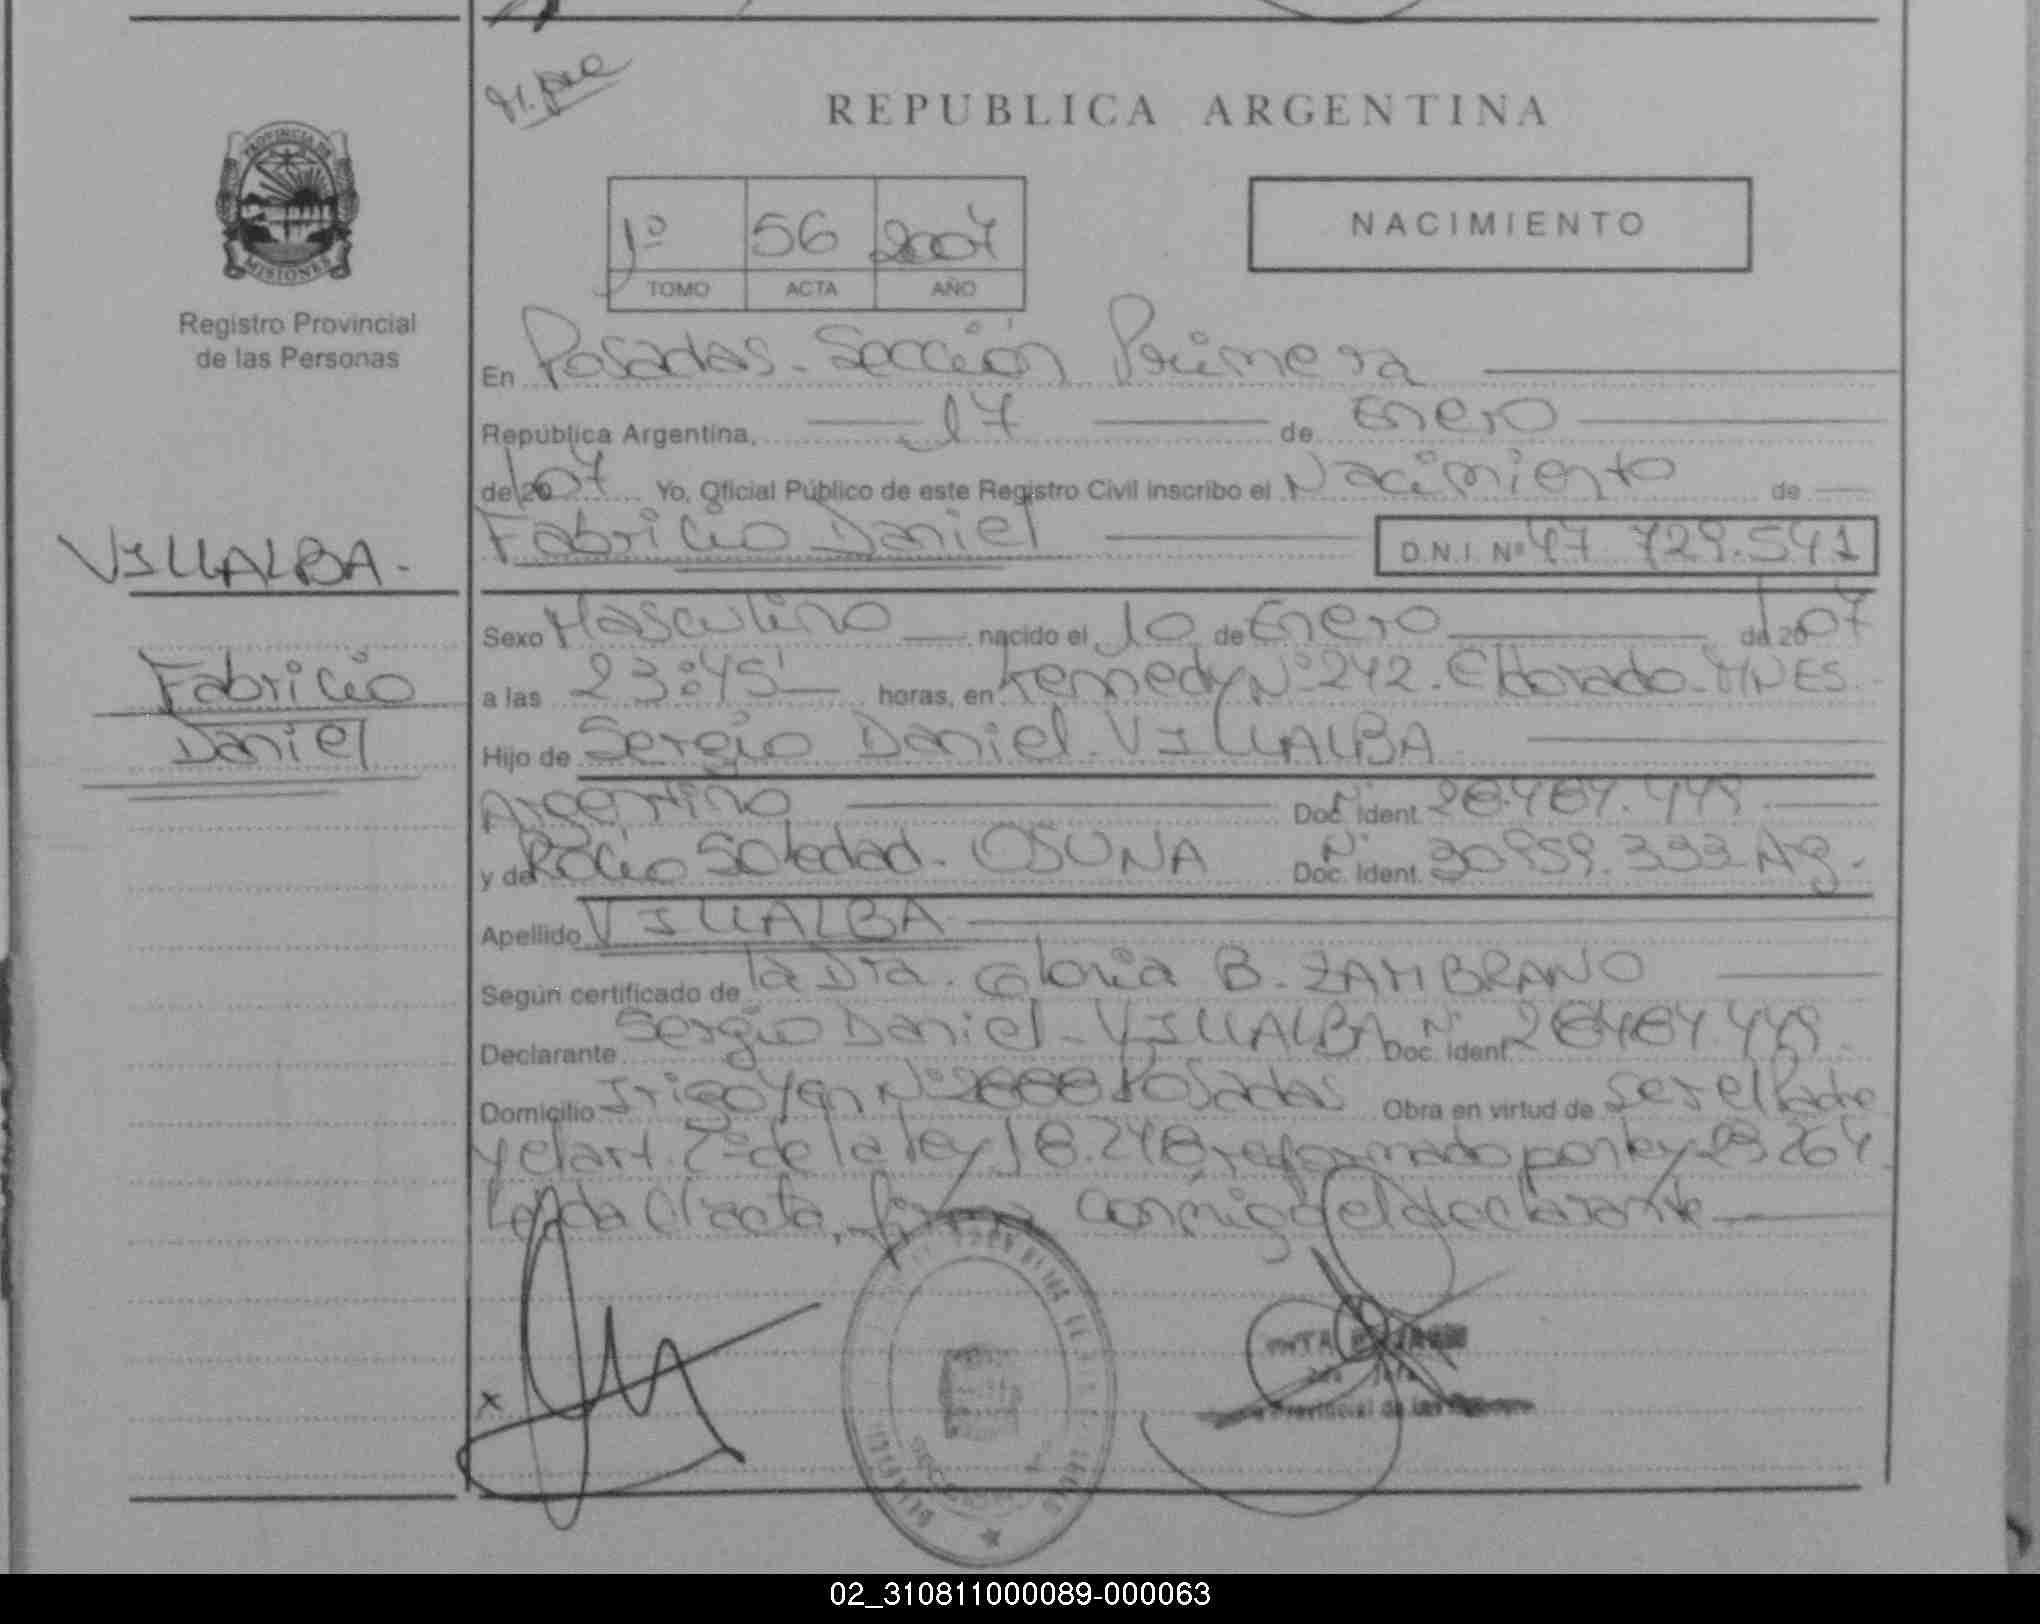 REPUBLICA ARGENTINA
PROVINCIA DE
MISIONES
Registro Provincial
de las Personas
1º 56 2007
TOMO ACTA AÑO
NACIMIENTO
En Posadas - Sección Primera
República Argentina, 17 de Enero
de 2007 Yo, Oficial Público de este Registro Civil inscribo el Nacimiento de
Fabricio Daniel D.N.I. Nº 47.729.541
VILLALBA.-
Fabricio
Daniel
Sexo Masculino nacido el 10 de Enero de 2007
a las 23:45' horas, en Kennedy Nº 242. Eldorado - MNES.
Hijo de Sergio Daniel - VILLALBA
Argentino Doc. Ident. Nº 28.484.449
y de Rocio Soledad - OSUNA Doc. Ident. Nº 30.959.393 Arg.
Apellido VILLALBA
Según certificado de la Dra. Gloria B. ZAMBRANO
Declarante Sergio Daniel - VILLALBA Doc. Ident. Nº 28.484.449
Domicilio Irigoyen Nº 2668 Posadas Obra en virtud de ser el Padre
y el art. 2º de la ley 18.248 reformado por ley 23.264.
Leída el acta, firma conmigo el declarante
x
Provincial de las
02_310811000089-000063